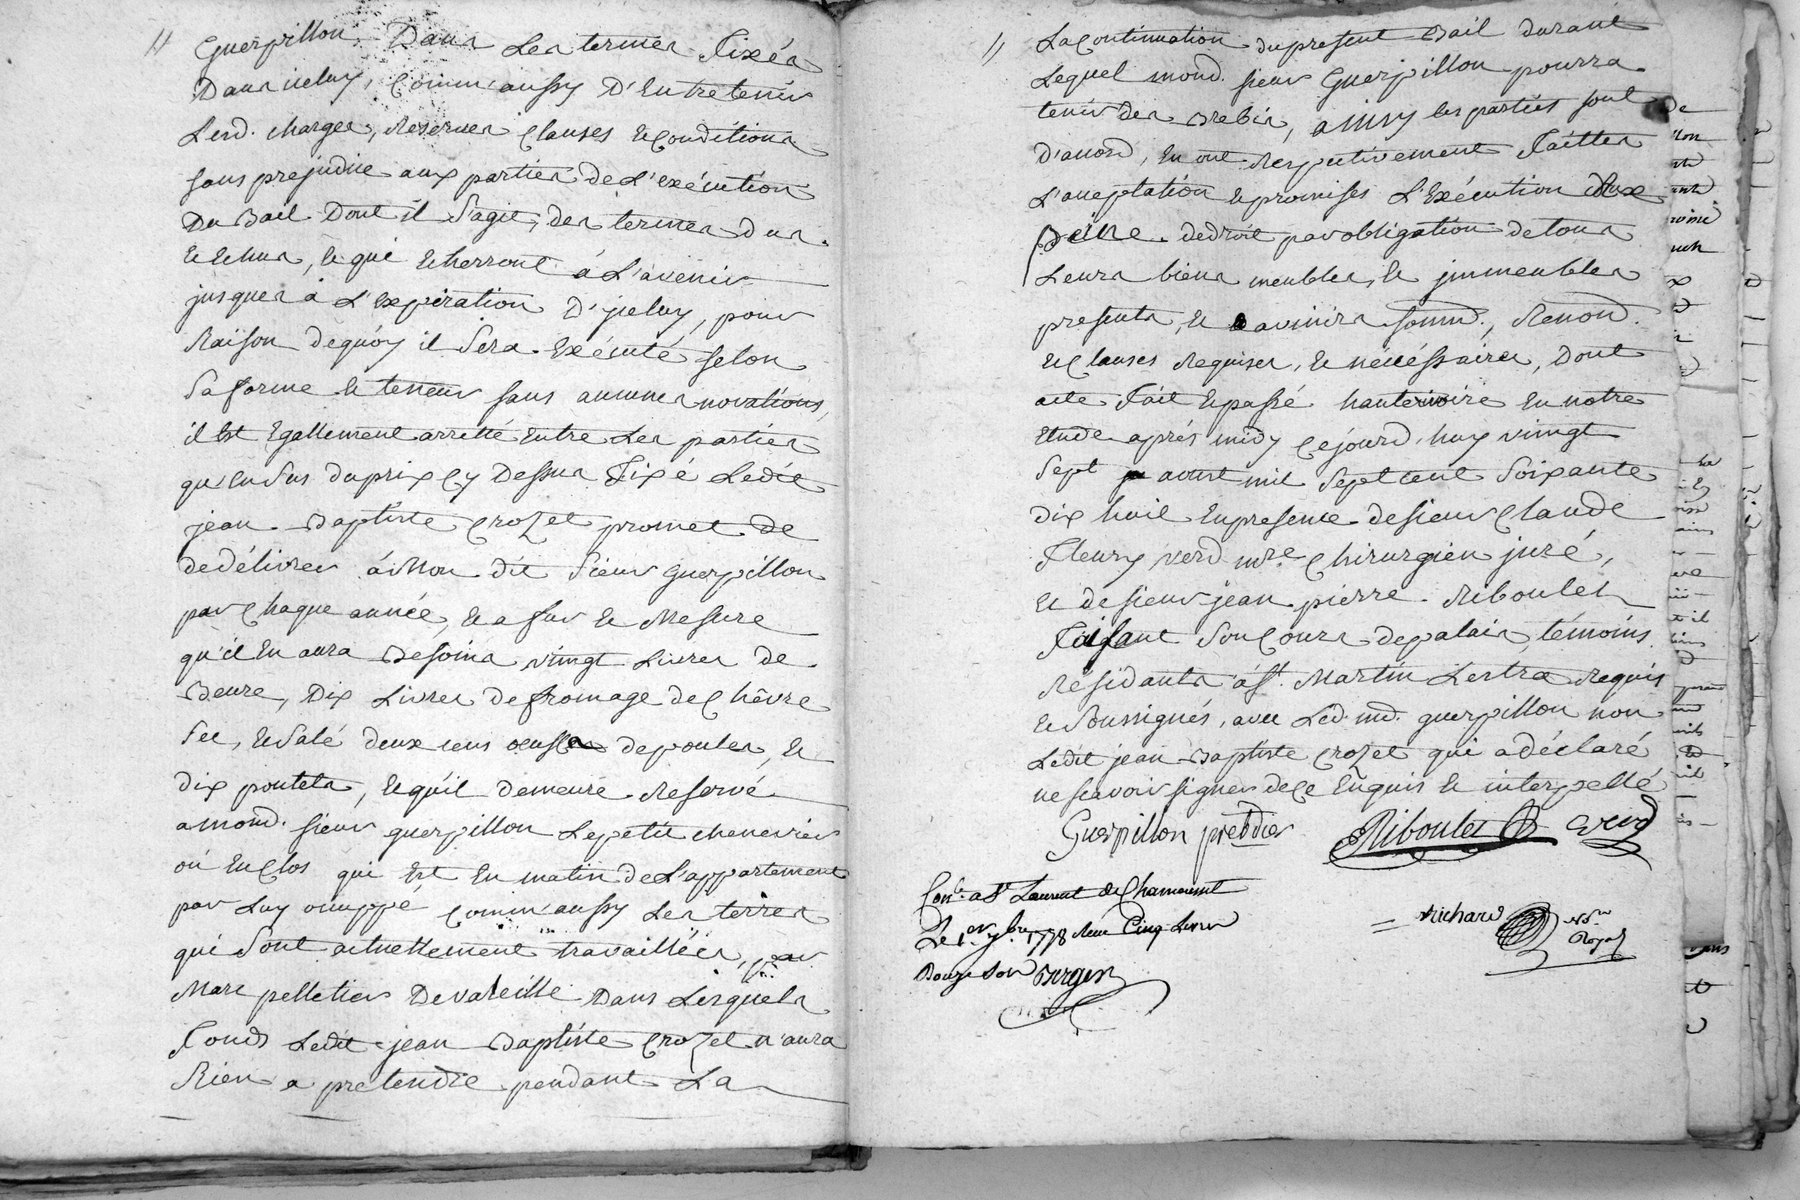 Guerpillon Dans Les termes Fixés
Dans icluy, Comm'aussy D'Entretenir
Lesd. charges, Reserves Clauses & Conditions
sans prejudice aux parties de L'exécution
Du Bail Dont il S'agit, des termes dus
& Echus, & qui Echerront á L'avenir
jusques á L'Expiration D'jceluy, pour
Raison dequoy il Sera Exécuté selon
Sa forme & teneur sans aucunes novations,
il Est Egallement arretté Entre Les parties
qu'en Sus du prix Cy Dessus Fixé Ledit
jean Baptiste Crozet promet de
de délivrer á Mon dit Sieur Guerpillon
par Chaque année, & a fur & Mesure
qu'il En aura Besoins vingt Livres de
Beure, Dix Livres de fromage de Chêvre
Sec, & Salé deux cens oeufs de poules, &
dix poulets, & qu'il demeure Reservé
a mond. sieur guerpillon Le petit chenevier
ou Enclos qui Est En matin de L'appartement
par Luy ocuppé Comm'aussy Les terres
qui Sont actuellement travaillées, par
Marc pelletier De vareille Dans Lesquels
Fonds Ledit jean Baptiste Crozet n'aura
Rien a pretendre pendant La
La Continuation du present Bail durant
Lequel mond. sieur Guerpillon pourra
tenir des Brebis, ainsy les parties sont
d'accord, En ont Respectivement Faittes
L'acceptation & promises L'Exécution aux
peine de droit par obligation de tous
Leurs biens meubles, & jmmeubles
presents, & avinirs soumd., Renond.
& Clauses Requises, & nécéssaires, Dont
acte Fait & passé hauterivoire En notre
Etude aprés midy Cejourd'huy vingt
Sept aoust mil Sept cent Soixante
Dix huit En presence de sieur Claude
Fleury verd mre. Chirurgien juré,
& de sieur jean pierre Riboulet
Faisant Son Cours de palais, témoins
Résidants á St. Martin Lestra Requis
& Soussignés, avec Led. md. guerpillon non
Ledit jean Baptiste Crozet qui a déclaré
ne scavoir signer de Ce Enquis & interpellé
Guerpillon prebdier Riboulet Verd
Conle. a St Laurent de Chamousset
Le 1er. 7bre. 1778 Recu Cinq Livres
Douze Sols Berger
Richard Nre
Royal